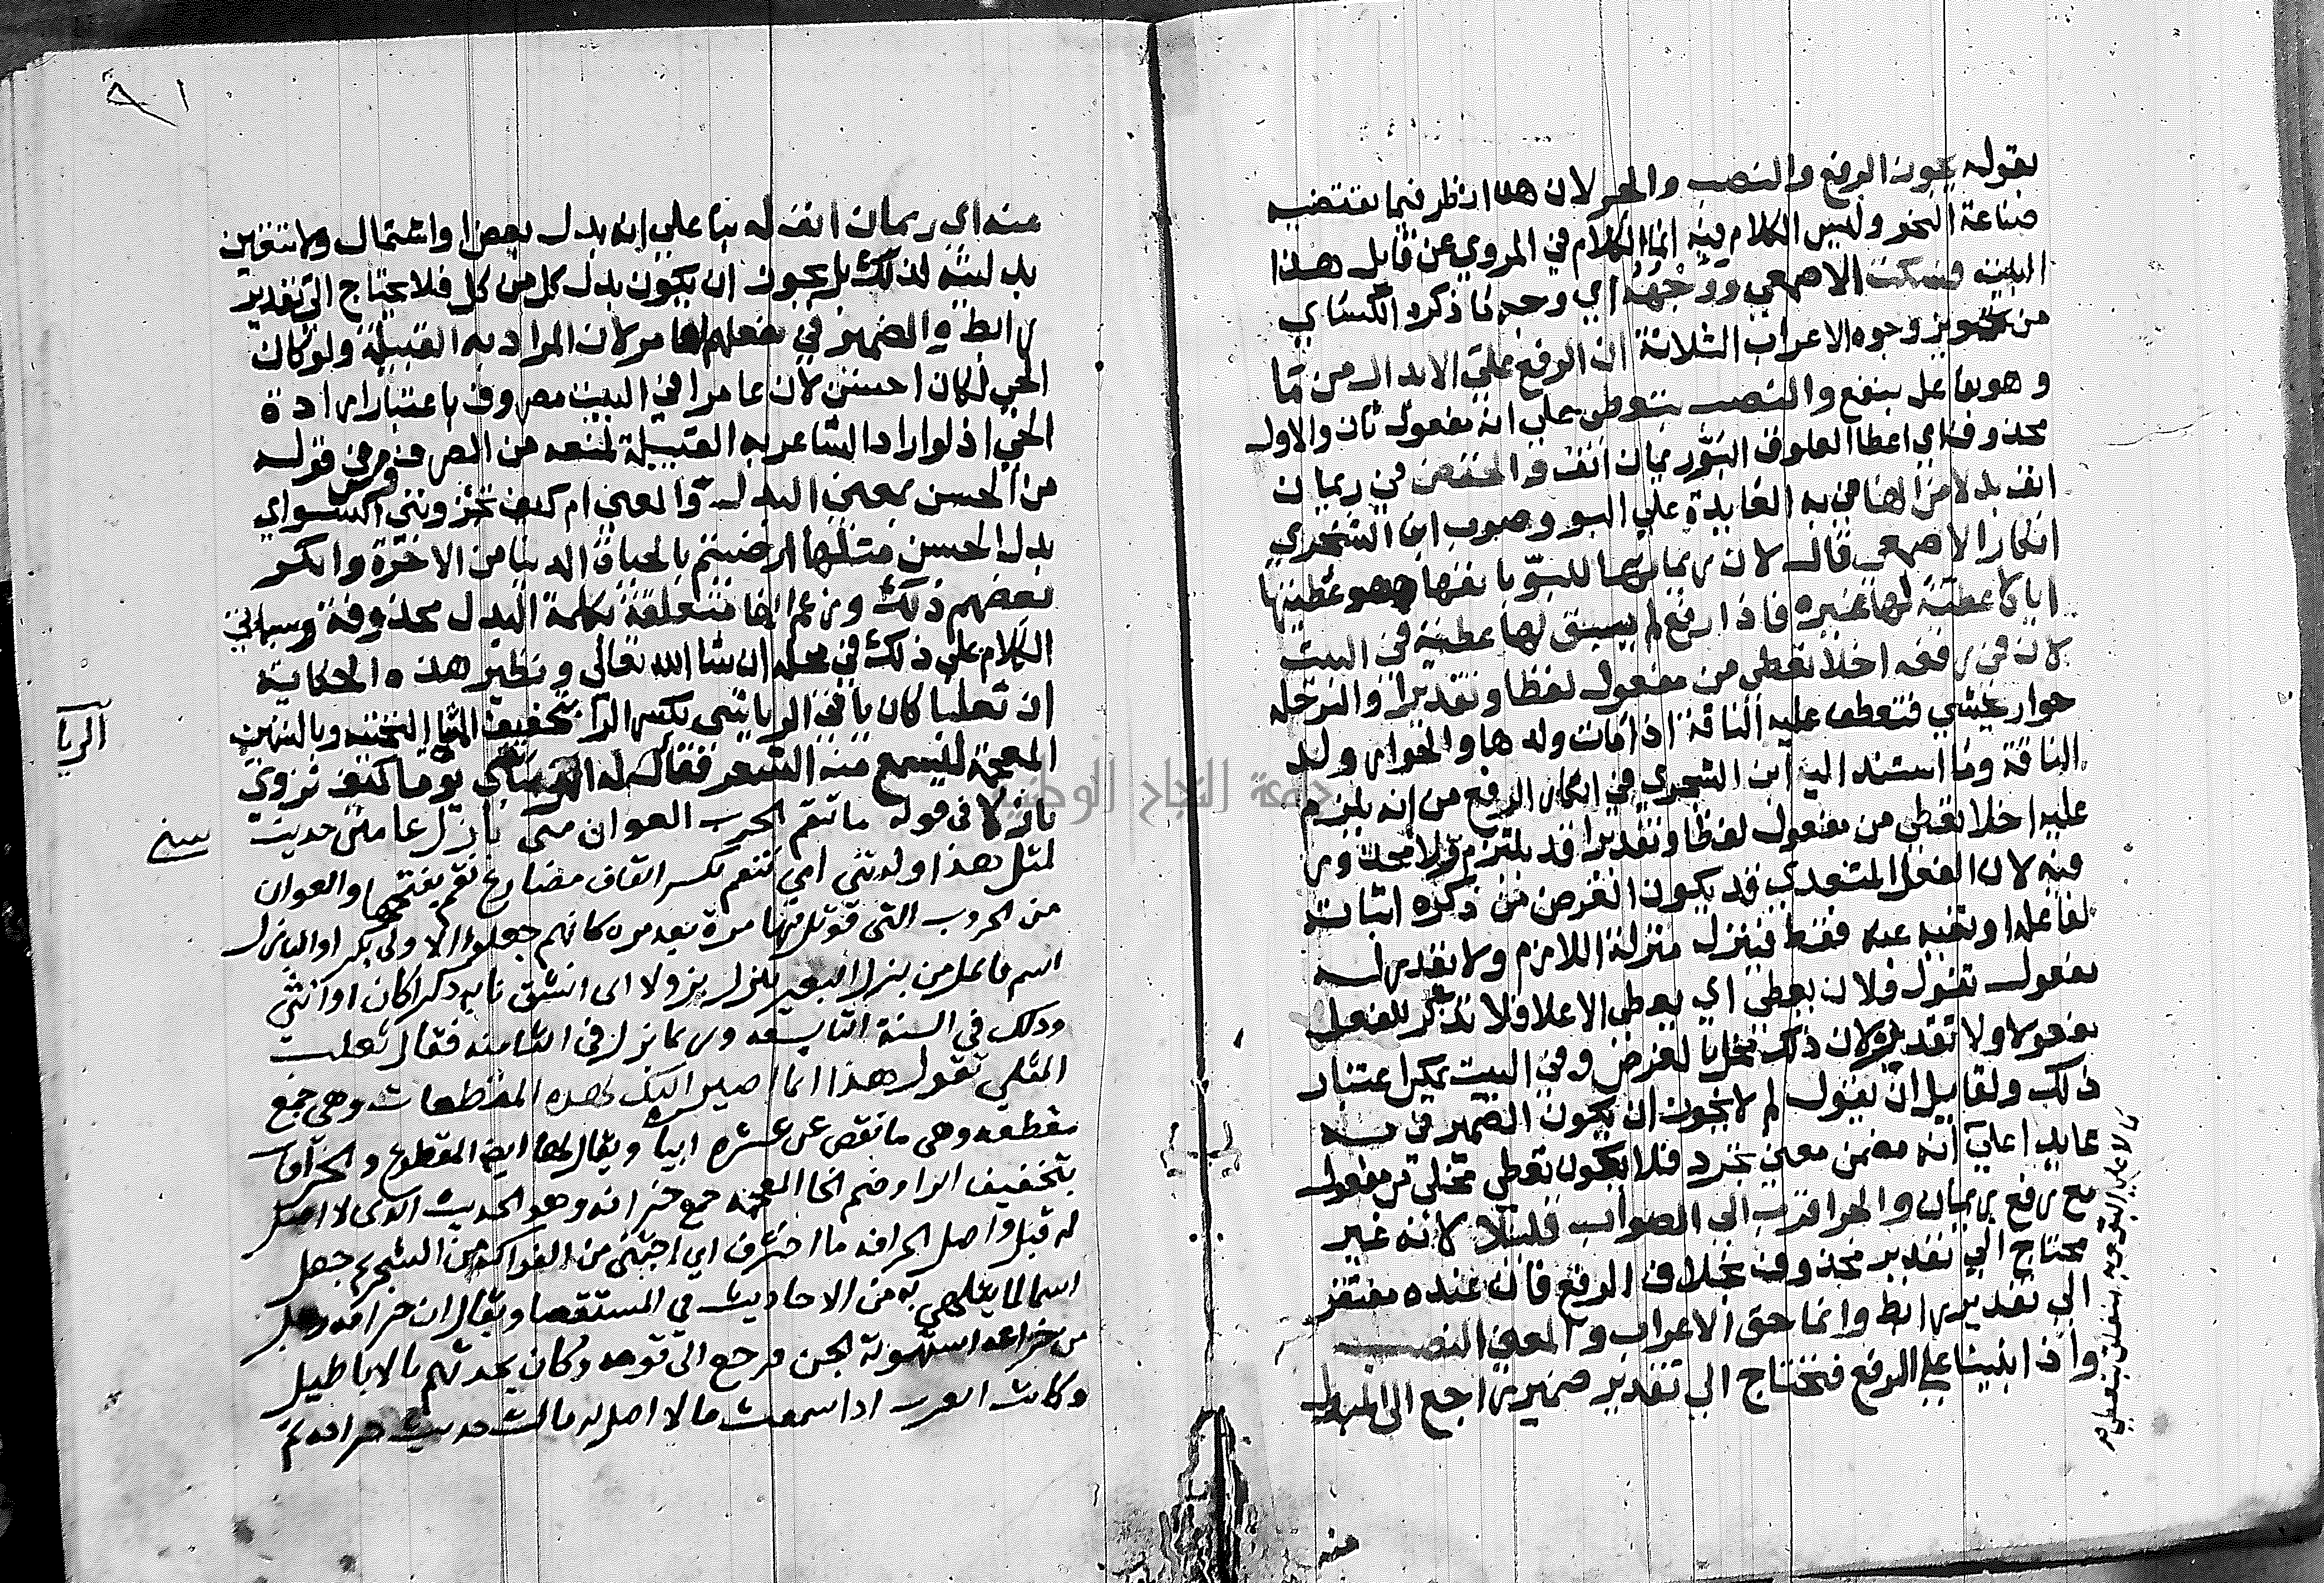 بقوله يجوز الرفع والنصب والجر لان هذا نظر فيما تقتضيه
صناعة النحو وليس الكلام فيه انما الكلام في المروي عن قايل هذا
البيت فسكت الاصمعي ووجهه اي وجه ما ذكره الكساي
من تجويز وجوه الاعراب الثلاثة ان الرفع علي الابدال من ما
وهو فاعل ينفع والنصب بتعطي علي انه مفعول ثان والاول
محذوف اي اعطا العلوق البو ريمان انف والخفض في ريمان
انف بدلا من الها من به العايدة علي البو وصوب ابن الشجري
انكار الاصمعي قال لان ريمانها للبو بانفها هو عطيتها
اياه لا عطية لها غيره فاذا رفع لم يبق لها عطية في البيت
لان في رفعه اخلا تعطي من مفعول لفظا وتقديرا والبو جلد
حوار يحشي فتعطف عليه الناقة اذا مات ولدها والحوار ولد
الناقة وما استند اليه ابن الشجري في انكار الرفع من انه يلزم
عليه اخلا تعطي من مفعول لفظا وتقديرا قد يلتزم ولا محذور
فيه لان الفعل المتعدي قد يكون الغرض من ذكره اثباته
لفاعله او نفيه عنه فقط فينزل منزلة اللازم ولا يقدر له
مفعول تقول فلان يعطي اي يفعل الاعطا فلا تذكر للفعل
مفعولا ولا تقديره لان ذلك يخل بالغرض وفي البيت يمكن اعتبار
ذلك ولقايل ان يقول لم لا يجوز ان يكون الضمير في به
عايد اعلي انه مضمن معني تجود فلا يكون تعطي مخلي من مفعول
مع رفع ريمان والجر اقرب الي الصواب قليلا لانه غير
محتاج الي تقدير محذوف بخلاف الرفع فان عنده مفتقر
الي تقدير رابط وانما حق الاعراب والمعني النصب
واذا بنينا علي الرفع فنحتاج الي تقدير ضمير راجع الي المبدل
منه
منه اي ريمان انف له بنا علي انه بدل بعض او اشتمال ولا تتعين
بدليته لذلك بل يجوز ان يكون بدل كل من كل فلا يحتاج الي تقدير
رابط والضمير في بفعلهم لعامر لان المراد به القبيلة ولو كان
الحي لكان احسن لان عامرا في البيت مصروف باعتبار ارادة
الحي اذ لو اراد الشاعر به القبيلة لمنعه من الصرف ومن في قوله
من الحسن بمعني البدل والمعني ام كيف تجزونني السواي
بدل الحسن مثلها ارضيتم بالحياة الدنيا من الاخرة وانكر
بعضهم ذلك وزعم انها متعلقة بكلمة البدل محذوفة وسياتي
الكلام علي ذلك في محله ان شا الله تعالي ونظير هذه الحكاية
ان ثعلبا كان ياتي الرياشي بكسر الرا وتخفيف اليا التحتية وبالشين
الريا
المعجمة ليسمع منه الشعر فقال له الرياشي يوما كيف تروي
بازلا في قوله ما تنقم الحرب العوان مني بازل عامين حديث
سني
لمثل هذا ولدتني امي تنقم بكسر القاف مضارع نقم بفتحها والعوان
من الحروب التي قوتل فيها مرة بعد مره كانهم جعلوا الاولي بكرا والبازل
اسم فاعل من بزل البعير يبزل بزولا اي انشق نابه ذكرا كان او انثي
وذلك في السنة التاسعه وربما بزل في الثامنه فقال ثعلب
المثلي تقول هذا انما اصير اليك لهذه المقطعات وهي جمع
مقطعه وهي ما نقص عن عشره ابيات ويقال لها ايضا المقطوع والخرافات
بتخفيف الرا وضم الخا المعجمه جمع خرافه وهو الحديث الذي لا اصل
له قيل واصل الخرافه ما اخترف اي اجتني من الفواكه من الشجر ثم جعل
اسما لما يتلهي به من الاحاديث في المستقصا ويقال ان خرافه رجل
من خزاعه استهوته الجن فرجع الي قومه وكان يحدثهم بالاباطيل
وكانت العرب اذا سمعت ما لا اصل له قالت حديث خرافه ثم
جامعة النجاح الوطنية